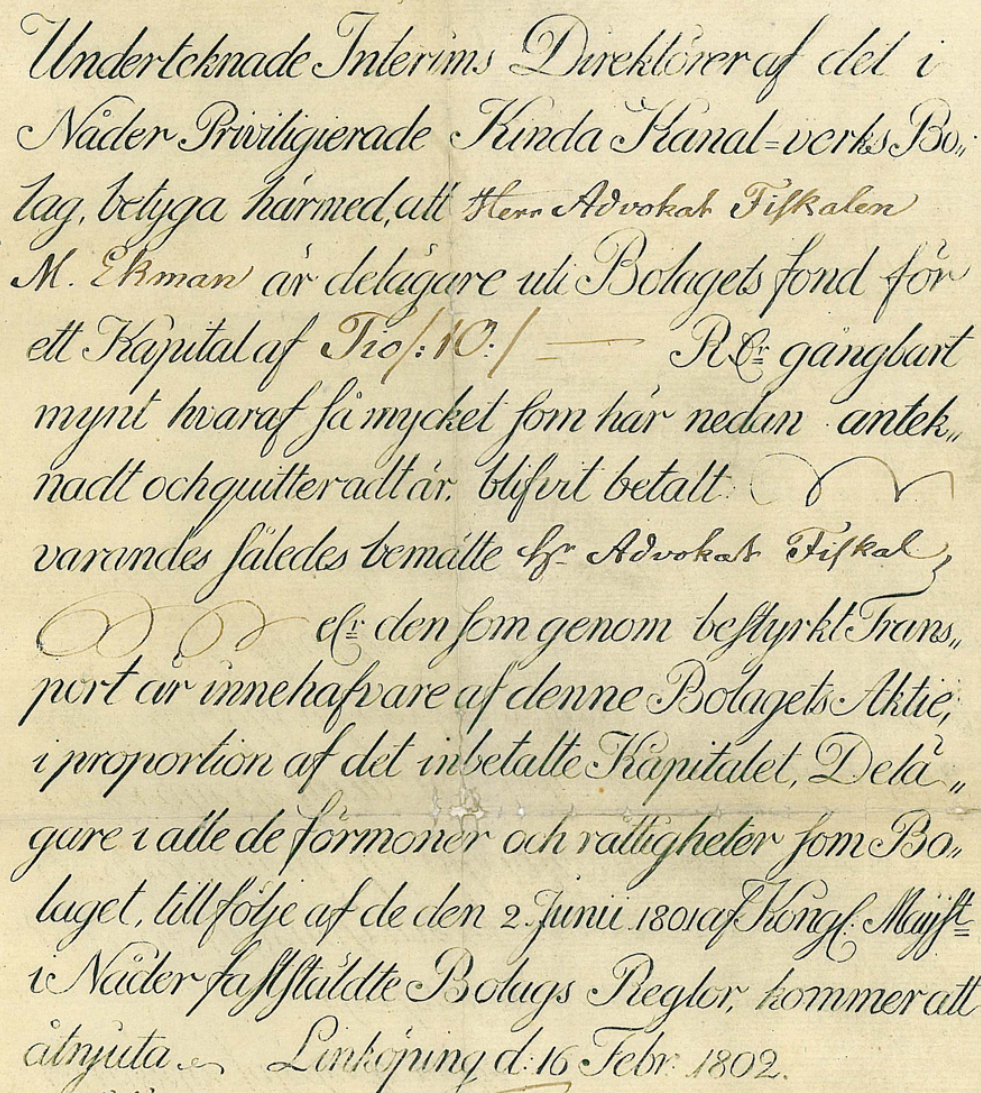 Underteknade Interims Direktörer af det i
Nåder Priviligierade Kinda Kanal=verks Bo„
lag, betyga härmed, att Herr Advokat Fiskalen
M. Ekman är delägare uti Bolagets fond för
ett Kapital af Tio/: 10 :/ — R.Dr gångbart
mynt hvaraf så mycket som här nedan antek„
nadt och quitteradt är, blifvit betalt
varandes således bemälte Hr Advokat Fiskal
elr den som genom bestyrkt Trans„
port är innehafvare af denne Bolagets Aktie,
i proportion af det inbetalte Kapitalet, Delä„
gare i alle de förmoner och rättigheter som Bo„
laget, till följe af de den 2. Junii 1801 af Kongl. Majst
i Nåder fastställdte Bolags Reglor, kommer att
åtnjuta Linköping d: 16 Febr: 1802.